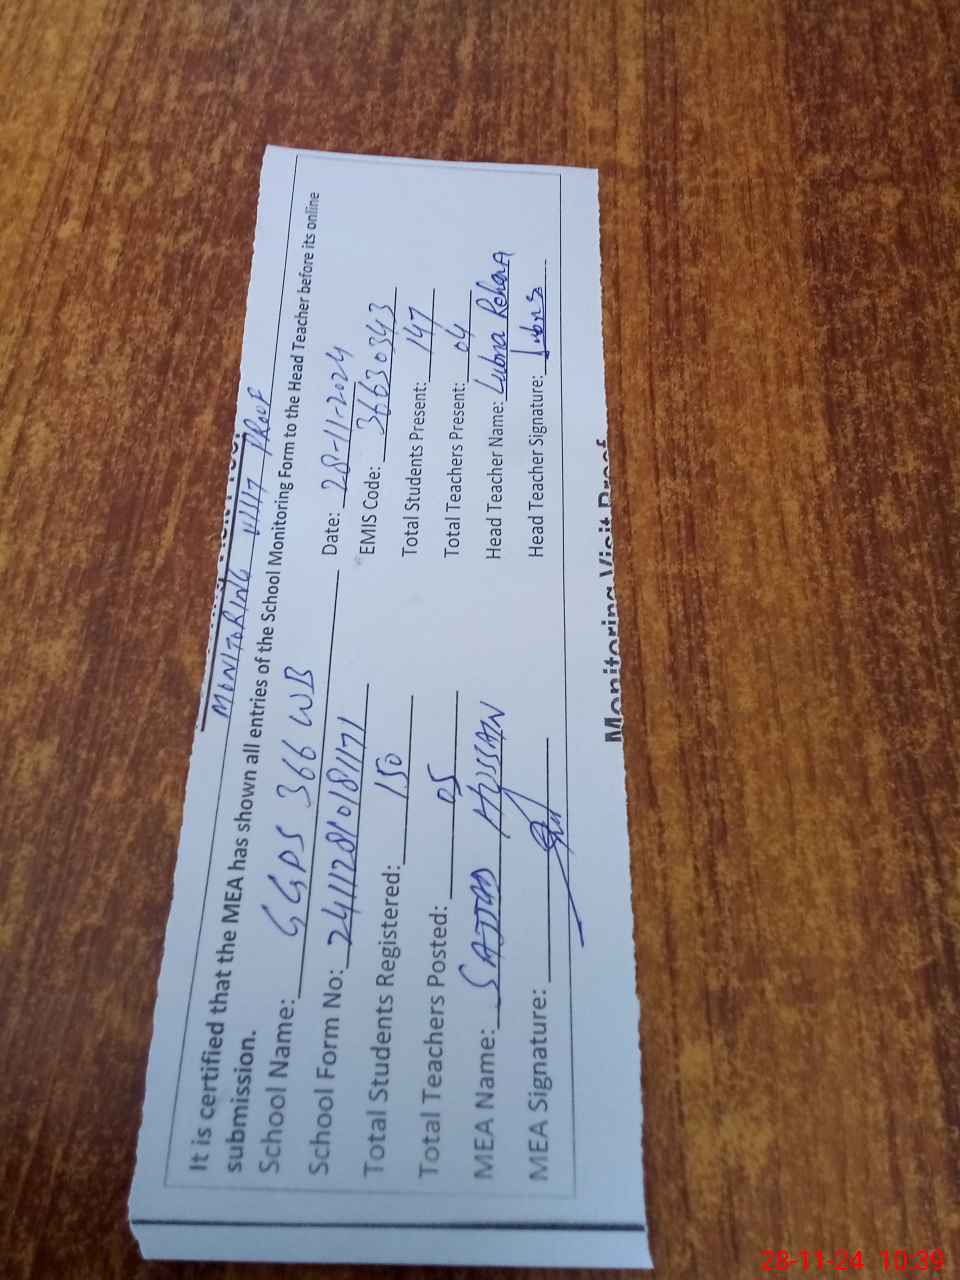 MONITORING VISIT PROOF
It is certified that the MEA has shown all entries of the School Monitoring Form to the Head Teacher before its online
submission.
School Name: GGPS 366 WB Date: 28-11-2024
School Form No: 24112810181171 EMIS Code: 36630343
Total Students Registered: 150 Total Students Present: 147
Total Teachers Posted: 05 Total Teachers Present: 04
MEA Name: SAJJAD HUSSAIN Head Teacher Name: Lubna Rehana
MEA Signature: Head Teacher Signature: Lubna
Monitoring Visit Proof
28-11-24 10:39